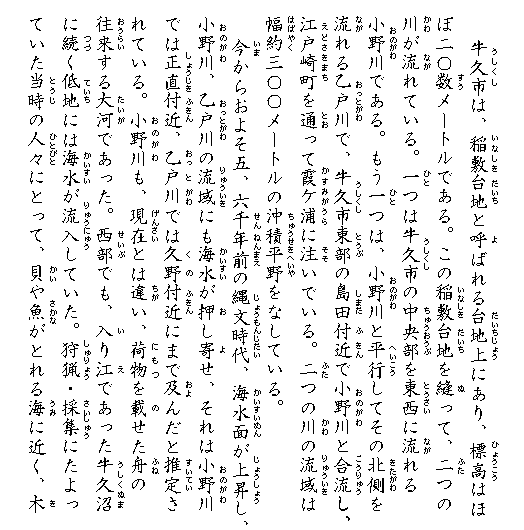 牛久市は、稲敷台地と呼ばれる台地上にあり、標高はほ
ぼ二〇数メートルである。この稲敷台地を縫って、二つの
川が流れている。一つは牛久市の中央部を東西に流れる
小野川である。もう一つは、小野川と平行してその北側を
流れる乙戸川で、牛久市東部の島田付近で小野川と合流し、
江戸崎町を通って霞ヶ浦に注いでいる。二つの川の流域は
幅約三〇〇メートルの沖積平野をなしている。
今からおよそ五、六千年前の縄文時代、海水面が上昇し、
小野川、乙戸川の流域にも海水が押し寄せ、それは小野川
では正直付近、乙戸川では久野付近にまで及んだと推定さ
れている。小野川も、現在とは違い、荷物を載せた舟の
往来する大河であった。西部でも、入り江であった牛久沼
に続く低地には海水が流入していた。狩猟・採集にたよっ
ていた当時の人々にとって、貝や魚がとれる海に近く、木